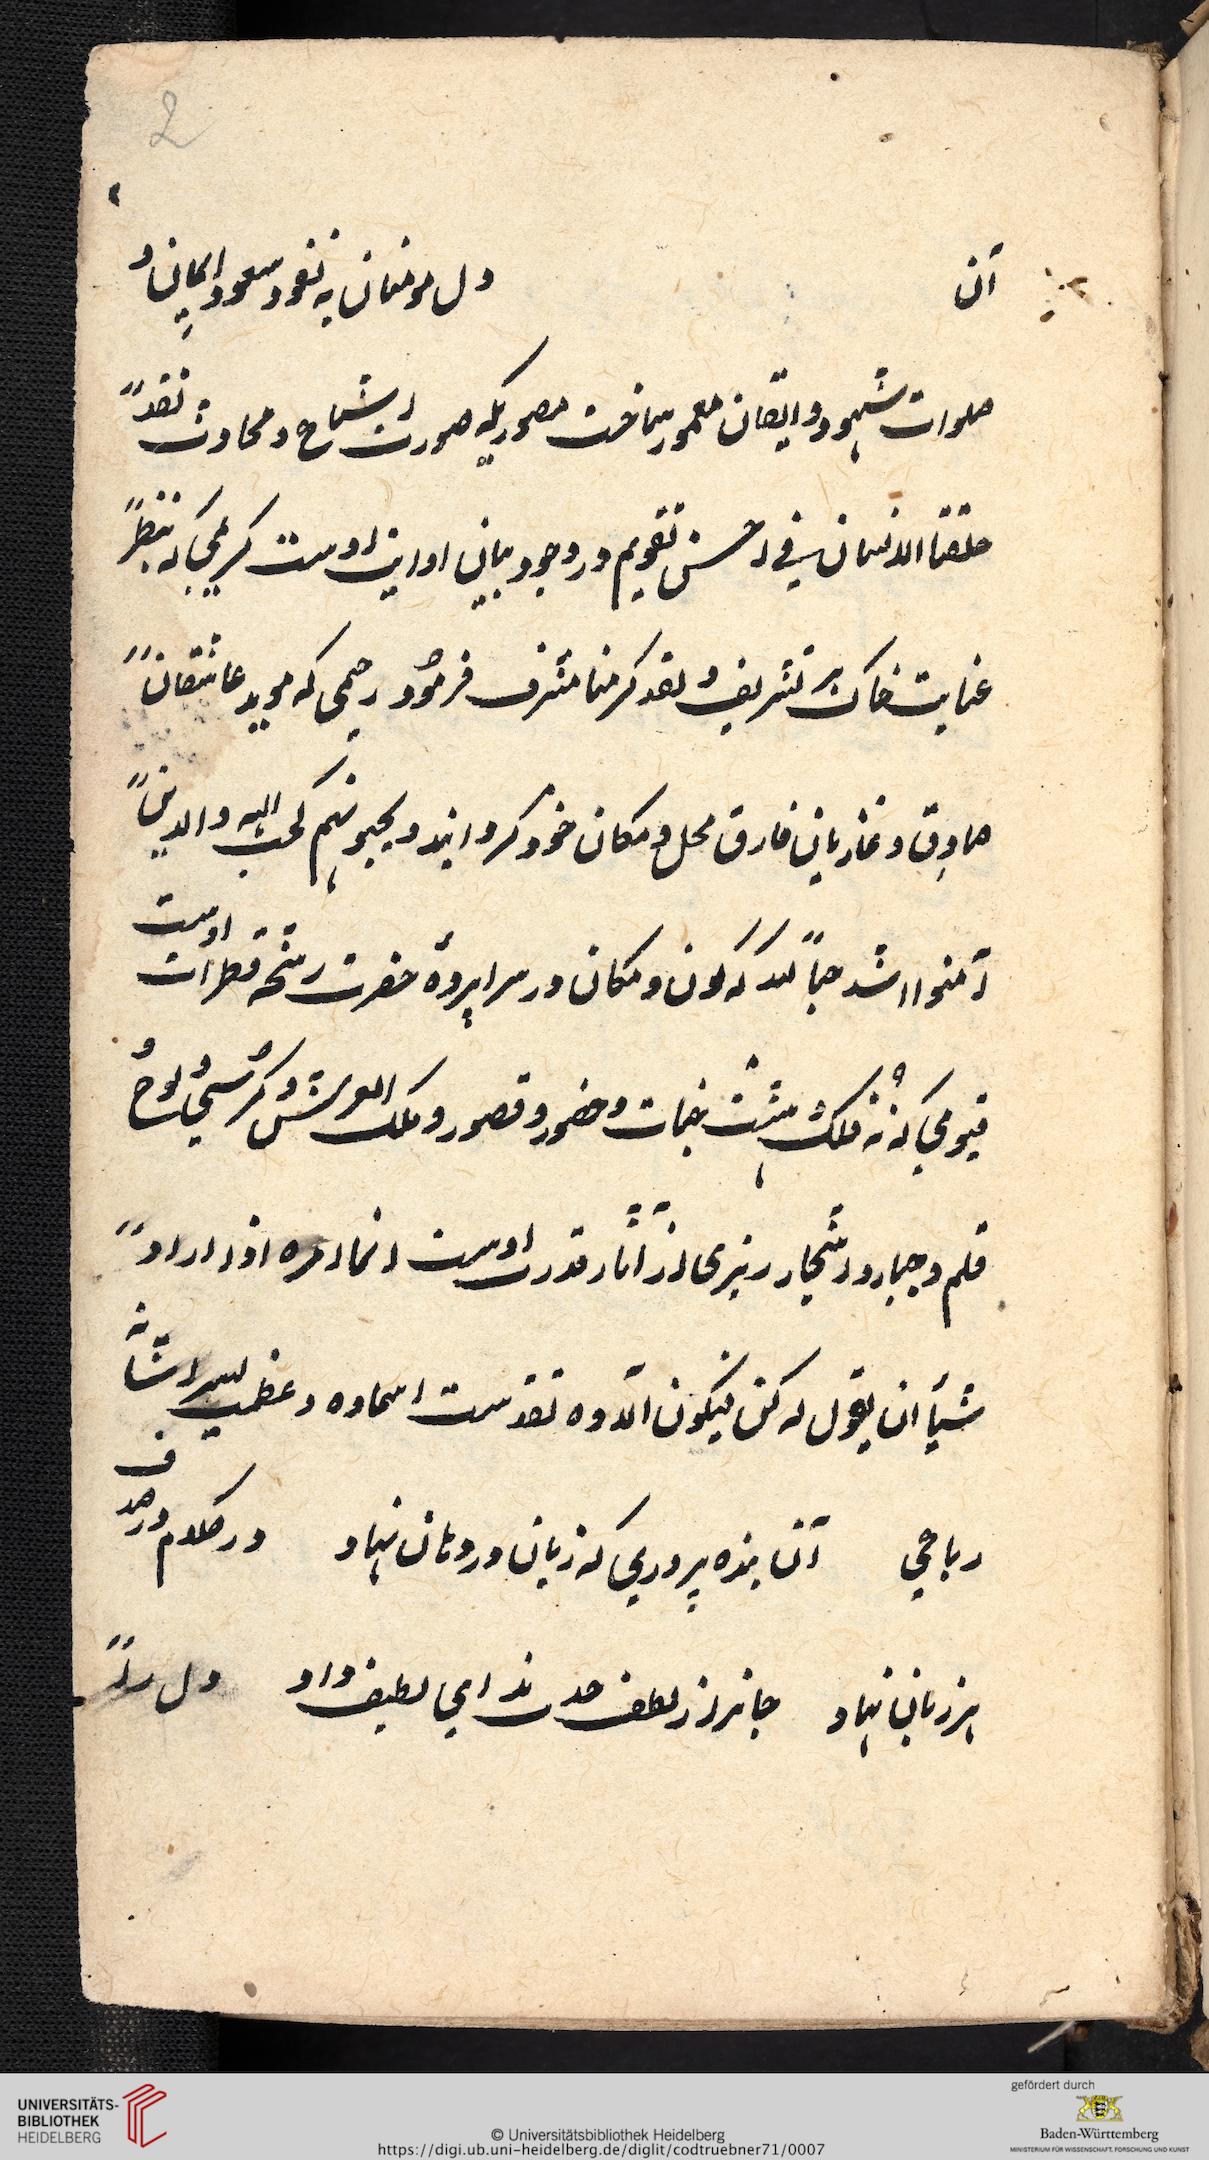 2
آن دل مومنان به نقود سعود ایمان و
صلوات شهود و ایقان معمور ساخت مصوریکه صورت اشباح و محادث لقد
خلقنا الانسان فی احسن تقویم در وجود بیانی او اوست کریمی که بنظر
عنایت خاک تشریف و لقد کرمنا مشرف فرمود رحیمی که موید عاشقان
صادق و فارق محل و مکان خود کرد اند و یحبونهم کحب الله والذین
آمنوا اشد حبا لله که کون و مکان در سراپرده حضرت رشحه قطرات اوست
قیومی که نه فلک بهشت و قصور و ملک العرش و کرسی و لوح
قلم و جبار و اشجار از آثار قدرت اوست انما امره اذا اراد
شیأ ان یقول له کن فیکون تقدست اسماؤه و عظمت شانه
رباعی آن بنده پروری که زبان در دهان نهاد در کلام در صدف
هر زبان نهاد جانرا ز لطف لطیف داد دل را
UNIVERSITÄTS-
BIBLIOTHEK
HEIDELBERG
© Universitätsbibliothek Heidelberg
https://digi.ub.uni-heidelberg.de/diglit/codtruebner71/0007
gefördert durch
Baden-Württemberg
MINISTERIUM FÜR WISSENSCHAFT, FORSCHUNG UND KUNST